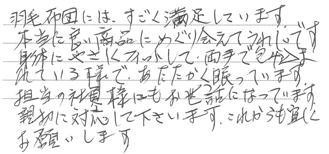 羽毛布団には、すごく満足しています。
本当に良い商品にめぐり会えてうれしいです
身体にやさしくフィットして、両手で包やま
れている様で、あたたかく眠っています。
担当の社員様にもお世話になっています。
親切に対応して下さいます。これからも宜しく
お願いします